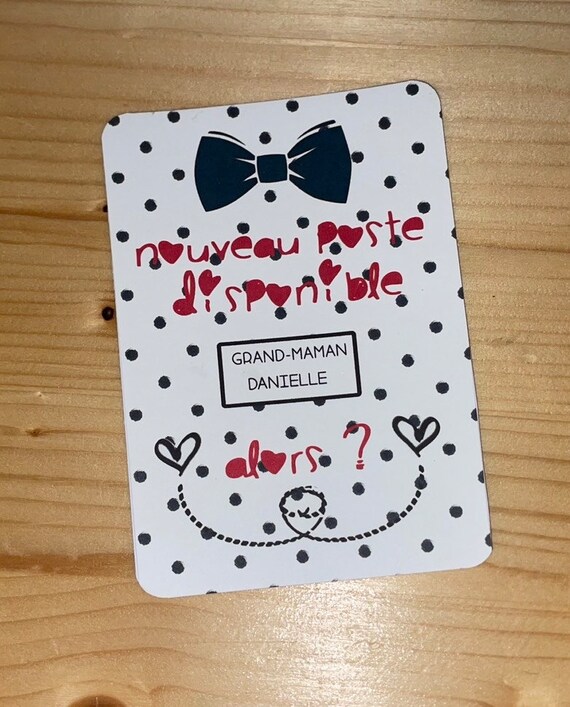 nouveau poste
disponible
GRAND-MAMAN
DANIELLE
alors ?